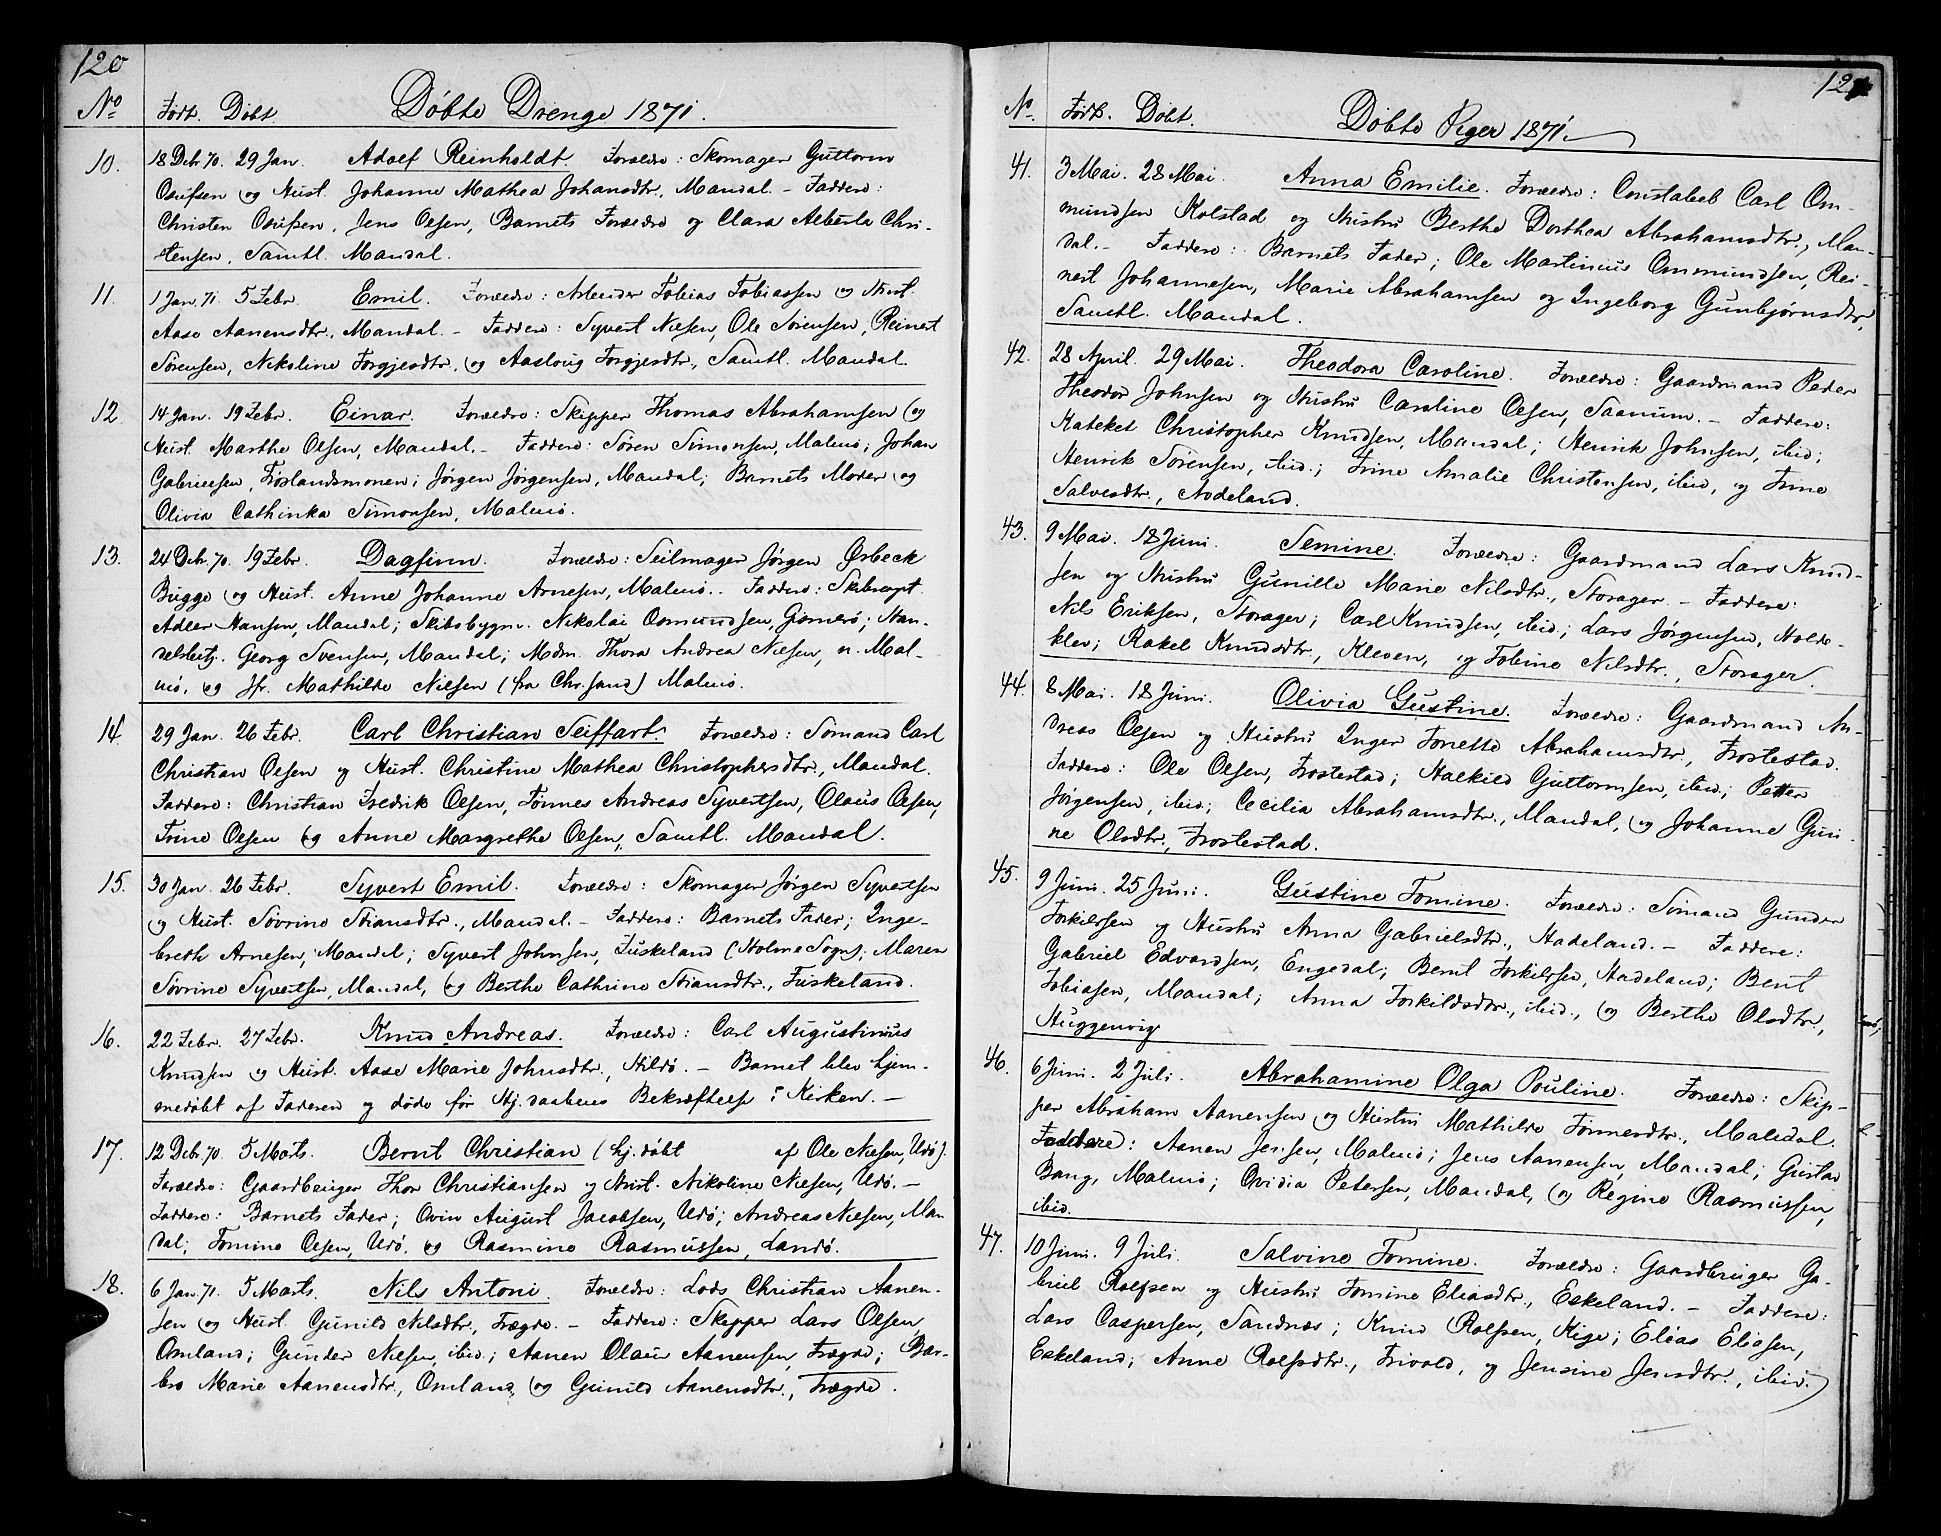 120
No Født. Døbt. Døbte Drenge 1871.
10. 18 Debr 70. 29 Jan. Adolf Reinholdt. Forældre: Skomager Guttorm
Osufsen og Hust. Johanne Mathea Johansdtr., Mandal. – Faddere:
Christen Osufsen, Jens Olsen, Barnets Forældre og Clara Alberta Chri-
stensen, Samtl. Mandal.
11. 1 Jan. 71. 5 Febr. Emil. Forældre: Arbeider Tobias Tobiassen og Hust.
Aase Aanensdtr., Mandal. – Faddere: Syvert Nielsen, Ole Sørensen, Reinert
Sørensen, Nikoline Torgjesdtr. og Aasloug Torgjesdtr., Samtl. Mandal.
12 14 Jan. 19 Febr. Einar. Forældre: Skipper Thomas Abrahamsen og
Hust. Marthe Olsen, Mandal. – Faddere: Søren Simonsen, Malmø; Johan
Gabrielsen, Frøslandsmonen; Jørgen Jørgensen, Mandal; Barnets Moder og
Olivia Cathinka Simonsen, Malmø.
13. 24 Debr. 70. 19 Febr. Dagfinn. Forældre: Seilmager Jørgen Ørbeck
Bugge og Hust. Anne Johanne Arnesen, Malmø. Faddere: Skibscapt.
Adler Hansen, Mandal; Skibsbygm. Nikolai Osmundsen, Gismerø; Han-
delsbetj. Georg Svensen, Mandal; Mdm. Thora Andrea Nielsen, n. Mal-
mø, og Jfr. Mathilde Nielsen (fra Chr.sand) Malmø.
14. 29 Jan. 26 Febr. Carl Christian Seiffart. Forældre: Sømand Carl
Christian Olsen og Hust. Christine Mathea Christophersdtr., Mandal.
Faddere: Christian Fredrik Olsen, Tønnes Andreas Syvertsen, Olaus Olsen,
Trine Olsen og Anne Margrethe Olsen, Samtl. Mandal.
15. 30 Jan. 26 Febr. Syvert Emil. Forældre: Skomager Jørgen Syvertsen
og Hust. Sövrine Stiansdtr., Mandal. – Faddere: Barnets Fader; Inge-
breth Arnesen, Mandal; Syvert Johnsen, Fuskeland (Holme Sogn); Maren
Sövrine Syvertsen, Mandal, og Berthe Cathrine Stiansdtr., Fuskeland.
16. 22 Febr. 27 Febr. Knud Andreas. Forældre: Carl Augustinius
Knudsen og Hust. Aase Marie Johnsdtr., Hildø. – Barnet blev hjem-
medøbt af Faderen og døde før Hj.daabens Bekræftelse i Kirken. –
17. 12 Debr. 70. 5 Marts. Bernt Christian (hj.døbt af Ole Nielsen, Udø).
Forældre: Gaardbruger Thor Christiansen og Hust. Nikoline Nielsen, Udø. –
Faddere: Barnets Fader; Ovin August Jacobsen, Udø; Andreas Nielsen, Man
dal; Tomine Olsen, Udø, og Rasmine Rasmussen, Landø.
18. 6 Jan. 71. 5 Marts. Nils Antoni. Forældre: Lods Christian Aanen-
sen og Hust. Gunild Nilsdtr., Trægde. – Faddere: Skipper Lars Olsen,
Omland; Gunder Nielsen, ibid.; Aanen Olaus Aanensen, Trægde; Bar-
bro Marie Aanensdtr., Omland, og Gunild Aanensdtr., Trægde.
121
No. Født. Døbt. Døbte Piger 1871.
41. 3 Mai. 28 Mai. Anna Emilie. Forældre: Constabel Carl Om-
mundsen Kolstad og Hustru Berthe Dorthea Abrahamsdtr., Man-
dal. – Faddere: Barnets Fader; Ole Martinius Ommundsen, Rei-
nert Johannesen, Marie Abrahamsen og Ingeborg Gunbjørnsdtr.,
Samtl. Mandal.
42. 28 April. 29 Mai. Theodora Caroline. Forældre: Gaardmand Peder
Theodor Johnsen og Hustru Caroline Olsen, Saanum. – Faddere:
Kateket Christopher Knudsen, Mandal; Henrik Johnsen, ibid;
Henrik Sørensen, ibid.; Trine Amalie Christensen, ibid, og Trine
Salvesdtr., Aodeland.
43. 9 Mai. 18 Juni. Semine. Forældre: Gaardmand Lars Knud-
sen og Hustru Gunille Marie Nilsdtr., Storager. – Faddere:
Nils Eriksen, Storager; Carl Knudsen, ibid; Lars Jørgensen, Holde-
klev; Rakel Knudsdtr., Kleven, og Tobine Nilsdtr., Storager.
44. 8 Mai. 18 Juni. Olivia Gustine. Forældre: Gaardmand An-
dreas Olsen og Hustru Inger Tonette Abrahamsdtr., Frostestad.
Faddere: Ole Olsen, Frostestad; Halkild Guttormsen, ibid; Petter
Jørgensen, ibid; Cecilia Abrahamsdtr., Mandal, og Johanne Guri-
ne Olsdtr., Frostestad.
45. 9 Juni. 25 Juni. Gustine Tomine. Forældre: Sømand Gunder
Torkildsen og Hustru Anna Gabrielsdtr., Hadeland. – Faddere:
Gabriel Edvardsen, Engedal; Bernt Torkildsen, Hadeland; Bent
Tobiasen, Mandal; Anna Torkildsdtr., ibid., og Berthe Olsdtr.,
Huggenvig
46. 6 Juni. 2 Juli. Abrahamine Olga Pouline. Forældre: Skip-
per Abraham Aanensen og Hustru Mathilde Tønnesdtr., Mandal.
Faddere: Aanen Jensen, Malmø; Jens Aanensen, Mandal; Gustav
Bang, Malmø; Ovidia Petersen, Mandal, og Regine Rasmussen,
ibid.
47. 10 Juni. 9 Juli. Salvine Tomine. Forældre: Gaardbruger Ga-
briel Rolfsen og Hustru Tomine Eliasdtr., Eskeland. – Faddere:
Lars Caspersen, Sandnæs; Knud Rolfsen, Kige; Elias Eliasen,
Eskeland; Anne Rolfsdtr., Trivold, og Jensine Jensdtr., ibid.